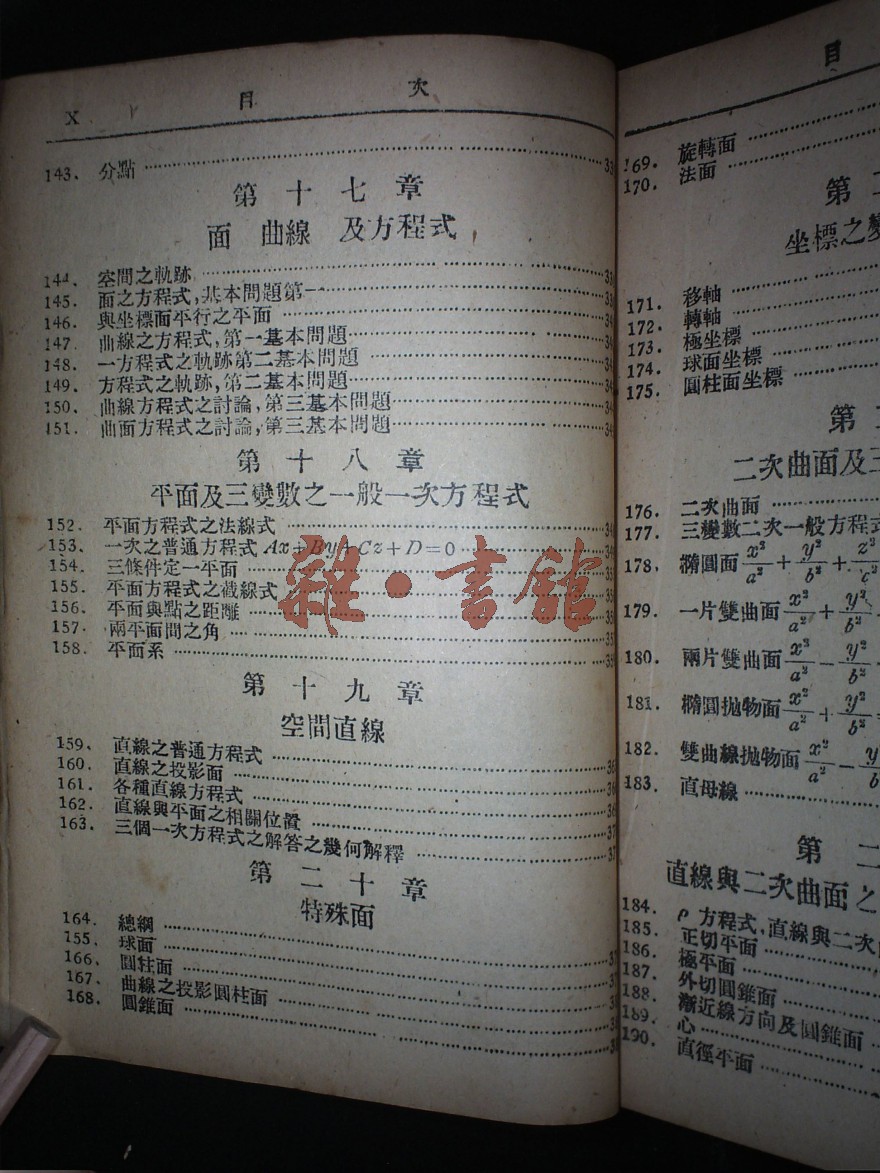 X 目 次
143. 分點
第十七章
面 曲線 及方程式
144. 空間之軌跡
145. 面之方程式,基本問題第一
146. 與坐標面平行之平面
147. 曲線之方程式,第一基本問題
148. 一方程式之軌跡第二基本問題
149. 方程式之軌跡,第二基本問題
150. 曲線方程式之討論,第三基本問題
151. 曲面方程式之討論,第三基本問題
第十八章
平面及三變數之一般一次方程式
152. 平面方程式之法線式
153. 一次之普通方程式 Ax+By+Cz+D=0
154. 三條件定一平面
155. 平面方程式之截線式
156. 平面與點之距離
157. 兩平面間之角
158. 平面系
雜·書館
第十九章
空間直線
159. 直線之普通方程式
160. 直線之投影面
161. 各種直線方程式
162. 直線與平面之相關位置
163. 三個一次方程式之解答之幾何解釋
第二十章
特殊面
164. 總綱
155. 球面
166. 圓柱面
167. 曲線之投影圓柱面
168. 圓錐面
目
169. 旋轉面
170. 法面
第二
坐標之變
171. 移軸
172. 轉軸
173. 極坐標
174. 球面坐標
175. 圓柱面坐標
第二
二次曲面及三
176. 二次曲面
177. 三變數二次一般方程式
178. 橢圓面 x²/a² + y²/b² + z²/c²
179. 一片雙曲面 x²/a² + y²/b² −
180. 兩片雙曲面 x²/a² − y²/b²
181. 橢圓拋物面 x²/a² + y²/b² =
182. 雙曲線拋物面 x²/a² − y/b
183. 直母線
第二
直線與二次曲面之
184. ρ 方程式,直線與二次
185. 正切平面
186. 極平面
187. 外切圓錐面
188. 漸近線方向及圓錐面
189. 心
190. 直徑平面